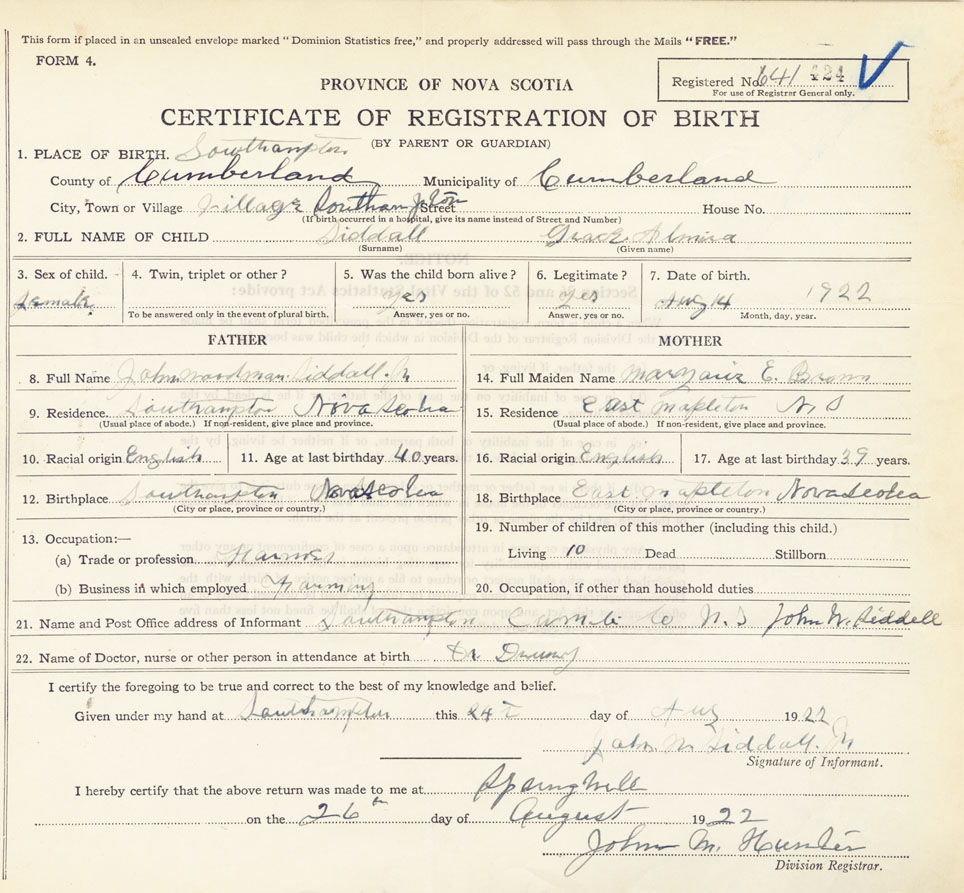 This form if placed in an unsealed envelope marked "Dominion Statistics free," and properly addressed will pass through the Mails "FREE."
FORM 4.
PROVINCE OF NOVA SCOTIA
Registered No. 641 424
For use of Registrar General only.
CERTIFICATE OF REGISTRATION OF BIRTH
(BY PARENT OR GUARDIAN)
1. PLACE OF BIRTH. Southampton
County of Cumberland Municipality of Cumberland
City, Town or Village Village Southampton Street House No.
(If birth occurred in a hospital, give its name instead of Street and Number)
2. FULL NAME OF CHILD Siddall Grace Almira
(Surname) (Given name)
3. Sex of child. 4. Twin, triplet or other? 5. Was the child born alive? 6. Legitimate? 7. Date of birth.
Female yes yes Aug 14 1922
To be answered only in the event of plural birth. Answer, yes or no. Answer, yes or no. Month, day, year.
FATHER MOTHER
8. Full Name John Woodman Siddall Jr 14. Full Maiden Name E. Brown
9. Residence. Southampton Nova Scotia 15. Residence East Mapleton N S
(Usual place of abode.) If non-resident, give place and province. (Usual place of abode.) If non-resident, give place and province.
10. Racial origin English 11. Age at last birthday 40 years. 16. Racial origin English 17. Age at last birthday 39 years.
12. Birthplace Southampton Nova Scotia 18. Birthplace East Mapleton Nova Scotia
(City or place, province or country.) (City or place, province or country.)
13. Occupation:— 19. Number of children of this mother (including this child.)
(a) Trade or profession Farmer Living 10 Dead Stillborn
(b) Business in which employed Farming 20. Occupation, if other than household duties
21. Name and Post Office address of Informant Southampton Co N. S John W. Siddell
22. Name of Doctor, nurse or other person in attendance at birth Dr
I certify the foregoing to be true and correct to the best of my knowledge and belief.
Given under my hand at Southampton this 24 day of Aug 1922
John W Siddall. Jr
Signature of Informant.
I hereby certify that the above return was made to me at Springhill
on the 26th day of August 1922
John M. Hunter
Division Registrar.